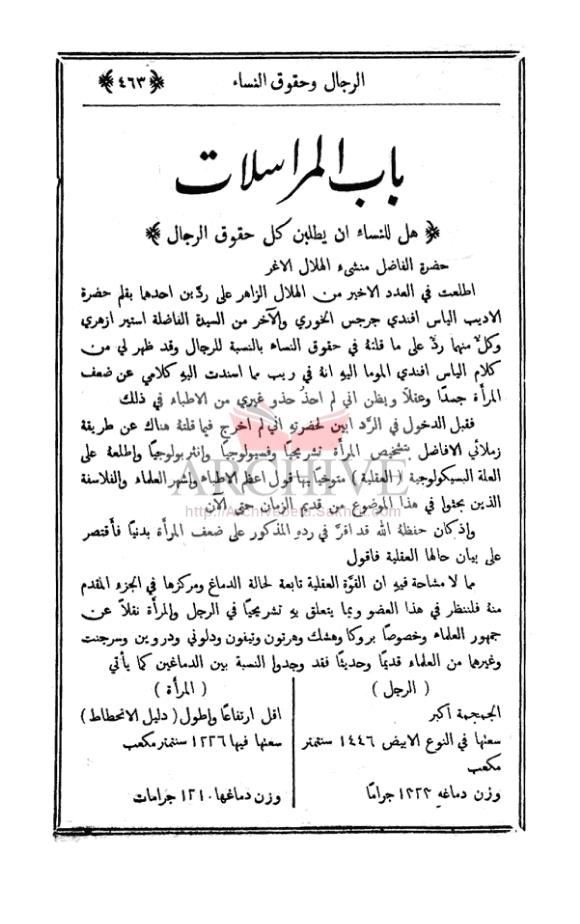 الرجال وحقوق النساء ﴿٤٦٣﴾
باب المراسلات
﴿ هل للنساء ان يطلبن كل حقوق الرجال ﴾
حضرة الفاضل منشىء الهلال الاغر
اطلعت في العدد الاخير من الهلال الزاهر على ردّين احدها بقلم حضرة
الاديب الياس افندي جرجس الخوري والآخر من السيدة الفاضلة استير ازهري
وكلٌ منهما ردٌ على ما قلتهُ في حقوق النساء بالنسبة للرجال وقد ظهر لي من
كلام الياس افندي الموما اليهِ انهُ في ريب مما اسندت اليهِ كلامي عن ضعف
المرأة جسدًا وعقلاً ويظن اني لم احذُ حذو غيري من الاطباء في ذلك
فقبل الدخول في الرّد ابين لحضرتهِ اني لم اخرج فيما قلتهُ هناك عن طريقة
زملائي الافاضل بتشخيص المرأة تشريحيًا وفسيولوجيًا وانثربولوجيًا واطلعهُ على
العلة البسيكولوجية ( العقلية ) متوخيًا بها قول اعظم الاطباء واشهر العلماء والفلاسفة
الذين بحثوا في هذا الموضوع من قديم الزمان حتى الآن
واذ كان حفظهُ الله قد اقرَّ في ردهِ المذكور على ضعف المرأة بدنيًا فأقتصر
على بيان حالها العقلية فاقول
مما لا مشاحة فيهِ ان القوَّة العقلية تابعة لحالة الدماغ ومركزها في الجزء المقدم
منهُ فلننظر في هذا العضو وبما يتعلق بهِ تشريحيًا في الرجل والمرأة نقلاً عن
جمهور العلماء وخصوصًا بروكا وهشك وهرتون وتيفون ودلوني ودروين وسرجنت
وغيرها من العلماء قديمًا وحديثًا فقد وجدوا النسبة بين الدماغين كما يأتي
( الرجل ) ( المرأة )
الجمجمة اكبر اقل ارتفاعًا واطول ( دليل الانحطاط )
سعتها في النوع الابيض ١٤٤٦ سنتمتر سعتها فيها ١٢٢٦ سنتمتر مكعب
مكعب
وزن دماغهِ جرامًا وزن دماغها ١٢١٠ جرامات
ARCHIVE
http://Archivebeta.Sakhrit.com